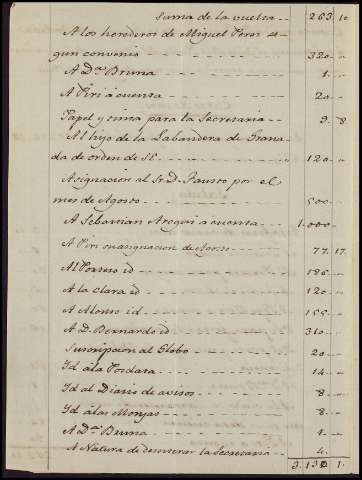 Suma de la vuelta -- 263 10
A los herederos de Miguel Peres se-
gun convenio ---- 320 --
A D.ª Bruna ---- 1. --
A Piri á cuenta ---- 20 --
Papel y tinta para la Secretaria -- 9. 8
Al hijo de la Labandera de Grana-
da de orden de SE ---- 120 --
Asignacion al Sr D. Fausto por el
mes de Agosto ---- 500 --
A Sebastian á cuenta -- 1.000 --
A Piri su asignacion de Agosto -- 77. 17.
Al id ---- 186 --
A la Clara id ---- 120 --
A Alonso id ---- 155 --
A D. Bernardo id ---- 310 --
Suscripcion al Globo ---- 20 --
Id á la Posdata ---- 14 --
Id al Diario de avisos ---- 8 --
Id á las Monjas ---- 8 --
A D.ª Bruna ---- 1 --
A Natura de esterar la Secretaria -- 4.
3.136 1.